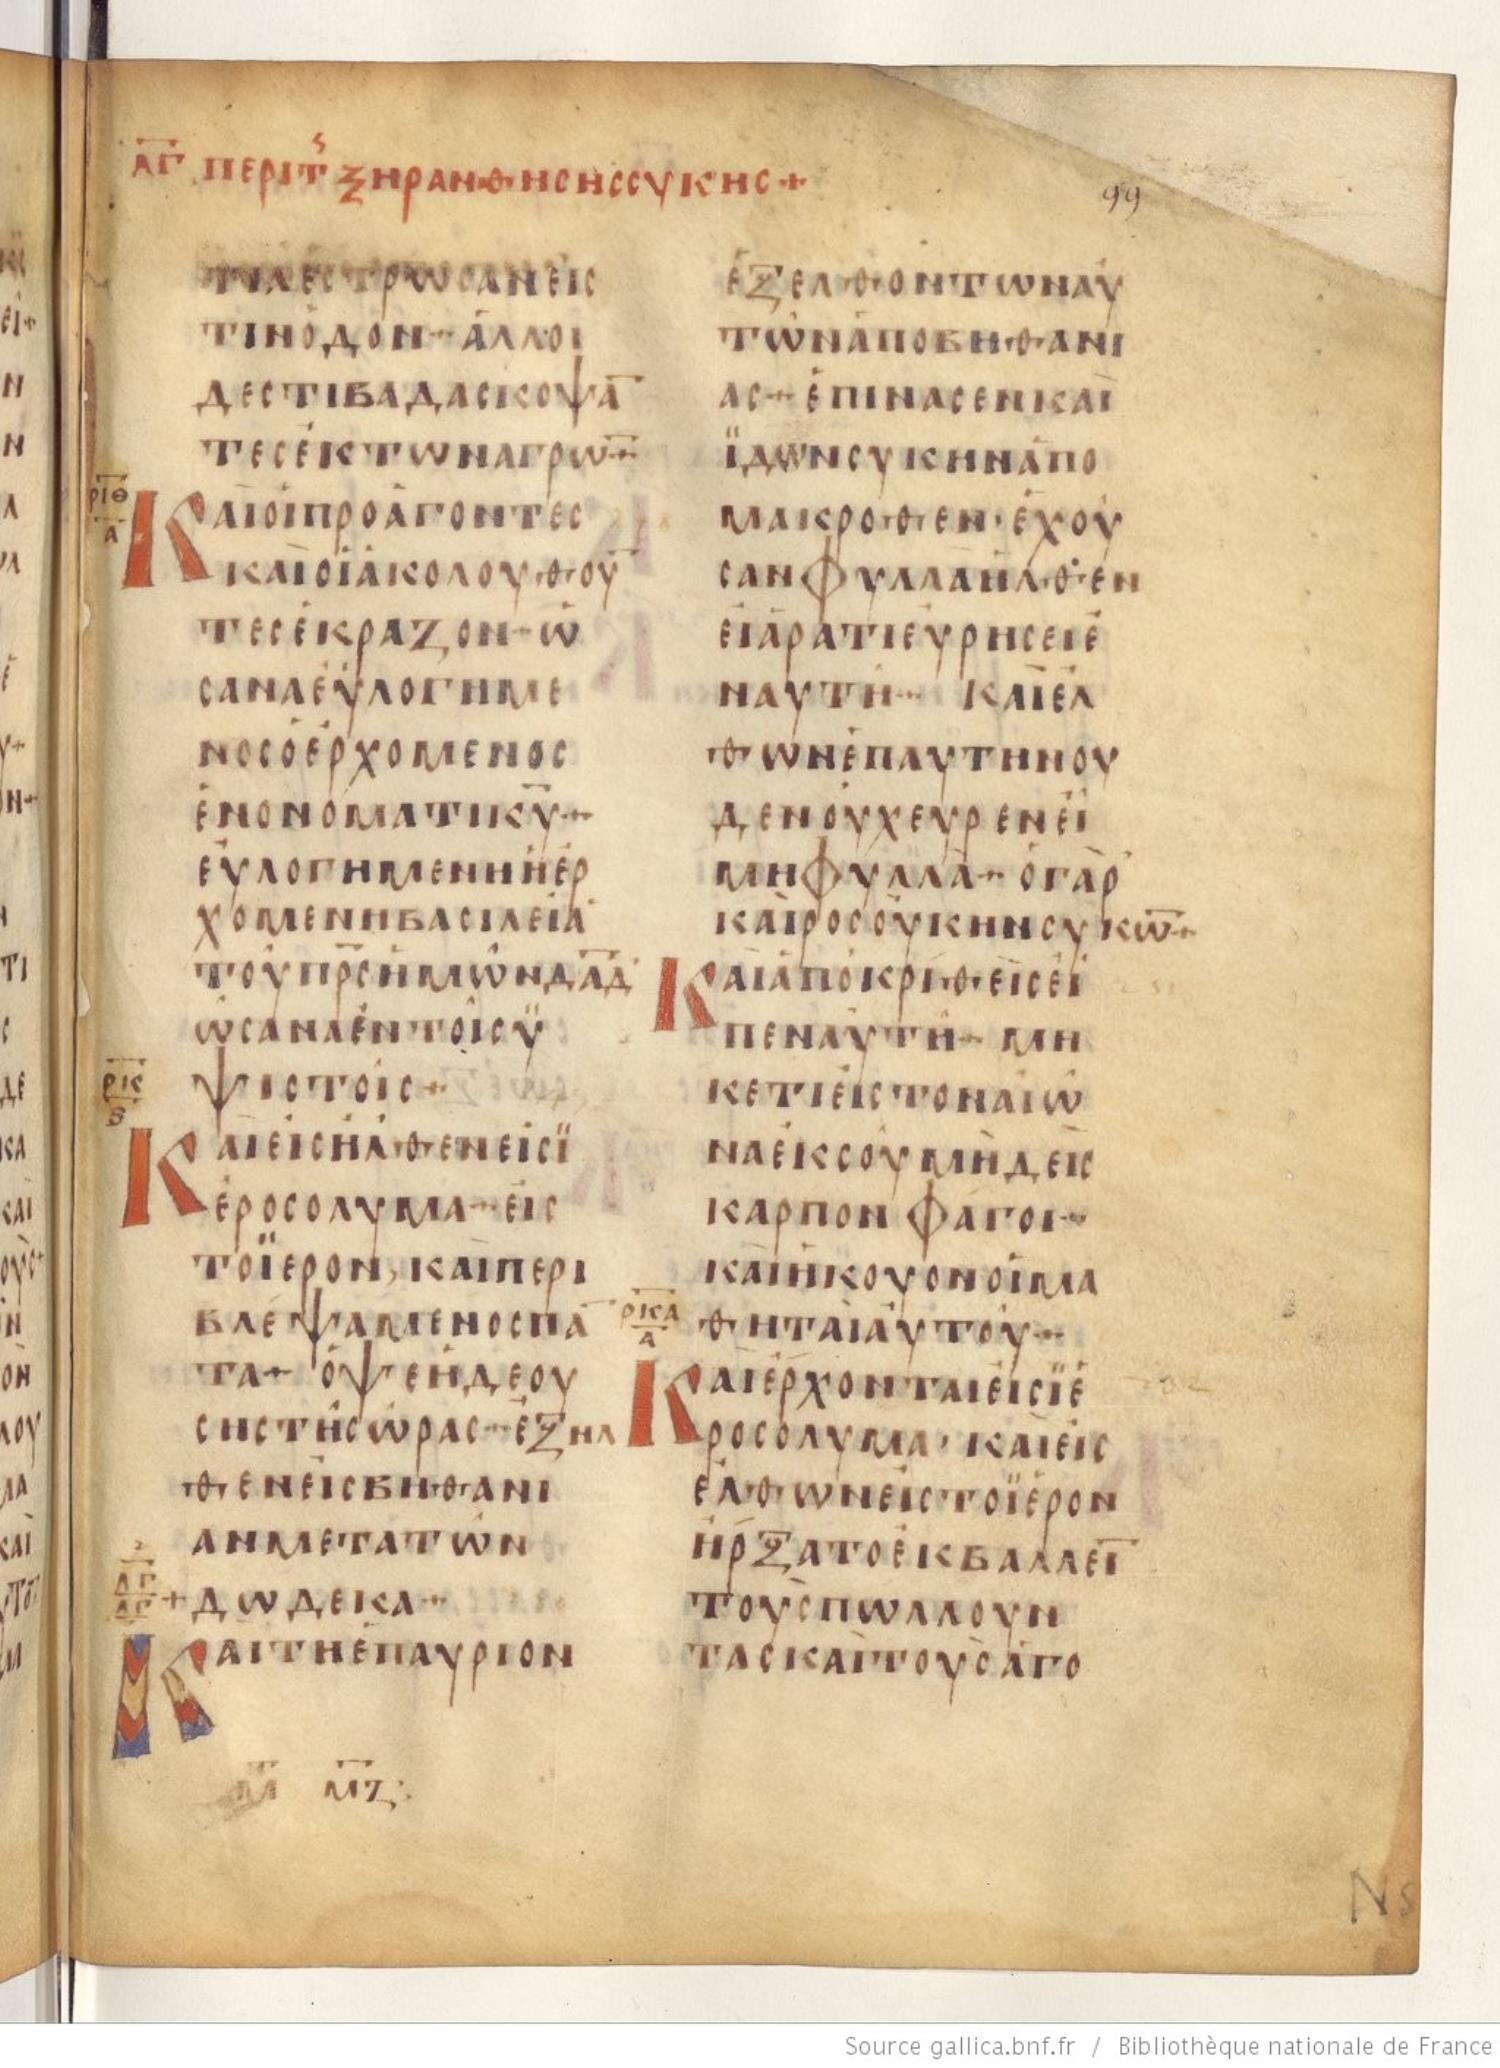 ΛΓ ΠΕΡΙ Τ͂ ΞΗΡΑΝΘΗCΗC CΥΚΗC+
99
ΤΙΑΕCΤΡΩCΑΝΕΙC
ΤΙΝΟΔΟΝ+ΑΛΛΟΙ
ΔΕCΤΙΒΑΔΑCΚΟΨΑ̅
ΤΕCΕΚΤΩΝΑΓΡΩ̅+
ΡΙΘ
Α
ΚΑΙΟΙΠΡΟΑΓΟΝΤΕC
ΚΑΙΟΙΑΚΟΛΟΥΘΟΥ̅
ΤΕCΕΚΡΑΖΟΝ+Ω
CΑΝΑΕΥΛΟΓΗΜΕ
ΝΟCΟΕΡΧΟΜΕΝΟC
ΕΝΟΝΟΜΑΤΙΚ̅Υ̅+
ΕΥΛΟΓΗΜΕΝΗΗΕΡ
ΧΟΜΕΝΗΒΑCΙΛΕΙΑ
ΤΟΥΠ̅Ρ̅CΗΜΩΝΔ̅Α̅Δ̅
ΩCΑΝΑΕΝΤΟΙCΥ
ΨΙCΤΟΙC+
ΡΚ
S
ΚΑΙΕΙCΗΛΘΕΝΕΙCΪ
ΕΡΟCΟΛΥΜΑ+ΕΙC
ΤΟΪΕΡΟΝ, ΚΑΙΠΕΡΙ
ΒΛΕΨΑΜΕΝΟCΠΑ̅
ΤΑ+ ΟΨΕΗΔΕΟΥ
CΗCΤΗCΩΡΑC+ΕΞΗΛ
ΘΕΝΕΙCΒΗΘΑΝΙ
ΑΝΜΕΤΑΤΩΝ
ΛΓ
ΛΓ
+ΔΩΔΕΚΑ+
ΚΑΙΤΗΕΠΑΥΡΙΟΝ
ΕΞΕΛΘΟΝΤΩΝΑΥ
ΤΩΝΑΠΟΒΗΘΑΝΙ
ΑC+ΕΠΙΝΑCΕΝΚΑΙ
ΪΔΩΝCΥΚΗΝΑΠΟ
ΜΑΚΡΟΘΕΝ·ΕΧΟΥ
CΑΝΦΥΛΛΑΗΛΘΕΝ
ΕΙΑΡΑΤΙΕΥΡΗCΕΙΕ
ΝΑΥΤΗ+ ΚΑΙΕΛ
ΘΩΝΕΠΑΥΤΗΝΟΥ
ΔΕΝΟΥΧΕΥΡΕΝΕΙ
ΜΗΦΥΛΛΑ+ΟΓΑΡ
ΚΑΙΡΟCΟΥΚΗΝCΥΚΩ̅+
ΚΑΙΑΠΟΚΡΙΘΕΙCΕΙ
ΠΕΝΑΥΤΗ+ ΜΗ
ΚΕΤΙΕΙCΤΟΝΑΙΩ
ΝΑΕΚCΟΥΜΗΔΕΙC
ΚΑΡΠΟΝΦΑΓΟΙ+
ΚΑΙΗΚΟΥΟΝΟΙΜΑ
ΘΗΤΑΙΑΥΤΟΥ+
ΡΚΑ
Α
ΚΑΙΕΡΧΟΝΤΑΙΕΙCΪΕ
ΡΟCΟΛΥΜΑ, ΚΑΙΕΙC
ΕΛΘΩΝΕΙCΤΟΪΕΡΟΝ
ΗΡΞΑΤΟΕΚΒΑΛΛΕΙ̅
ΤΟΥCΠΩΛΛΟΥΝ
ΤΑCΚΑΙΤΟΥCΑΓΟ
Μ̅ Μ̅Ζ
Source gallica.bnf.fr / Bibliothèque nationale de France